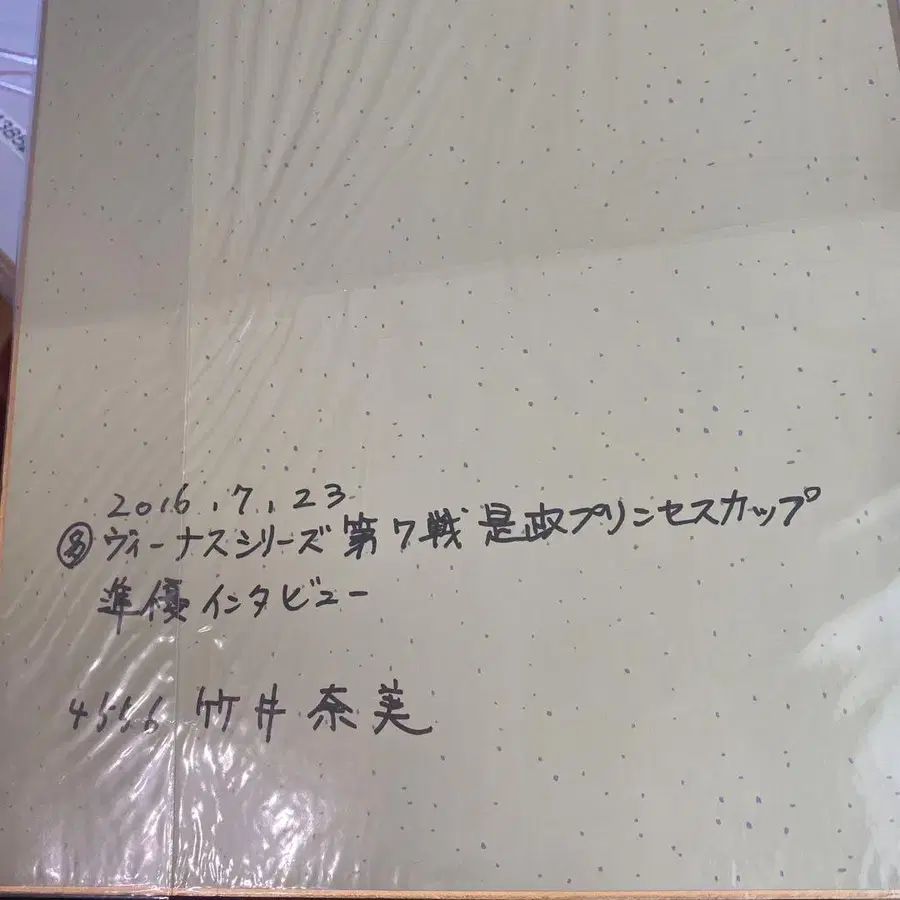 2016.7.23
㋲ヴィーナスシリーズ第7戦 是政プリンセスカップ
準優インタビュー
4556 竹井奈美